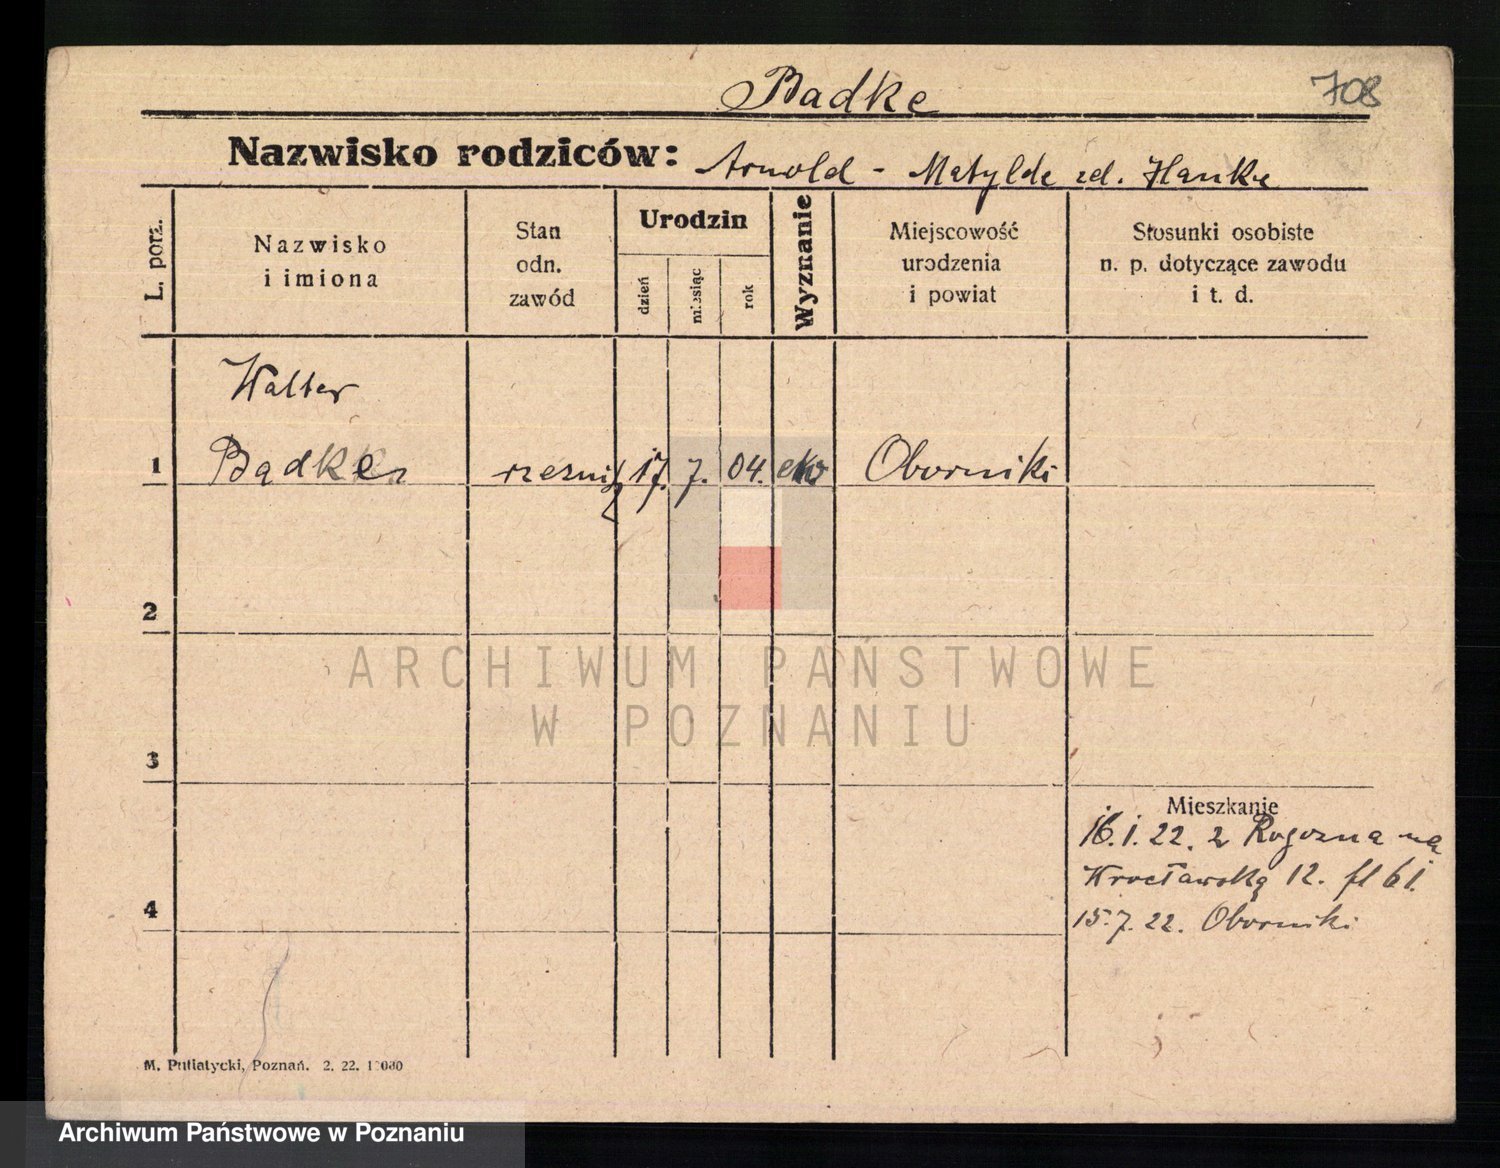 Badke
708
Nazwisko rodziców: Arnold - Matylde zd. Hanke
L. porz.
Nazwisko
i imiona
Stan
odn.
zawód
Urodzin
dzień
miesiąc
rok
Wyznanie
Miejscowość
urodzenia
i powiat
Stosunki osobiste
n. p. dotyczące zawodu
i t. d.
Walter
1 Badke 17. 7. 04. Oborniki
2
3
4
Mieszkanie
16.1.22. z Rogozna na
Wrocławską 12.
15.7.22. Oborniki
ARCHIWUM PAŃSTWOWE
W POZNANIU
M. Putiatycki, Poznań. 2. 22.
Archiwum Państwowe w Poznaniu